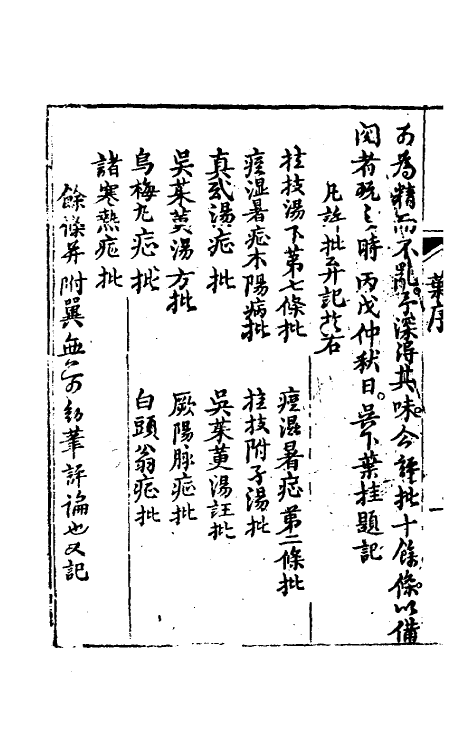 葉序
一
可為精而不亂予深得其味今註批十餘條以備
閱者玩之時丙戊仲秋日吳下葉桂題記
凡註批弃記於右
桂枝湯下第七條批
痙湿暑症第二條批
痙湿暑症木陽病批
桂枝附子湯批
真武湯症批
吳茱萸湯註批
吳茱萸湯方批
厥陽脉症批
烏梅丸症批
白頭翁症批
諸寒熱症批
餘條并附翼無可動筆評論也又記